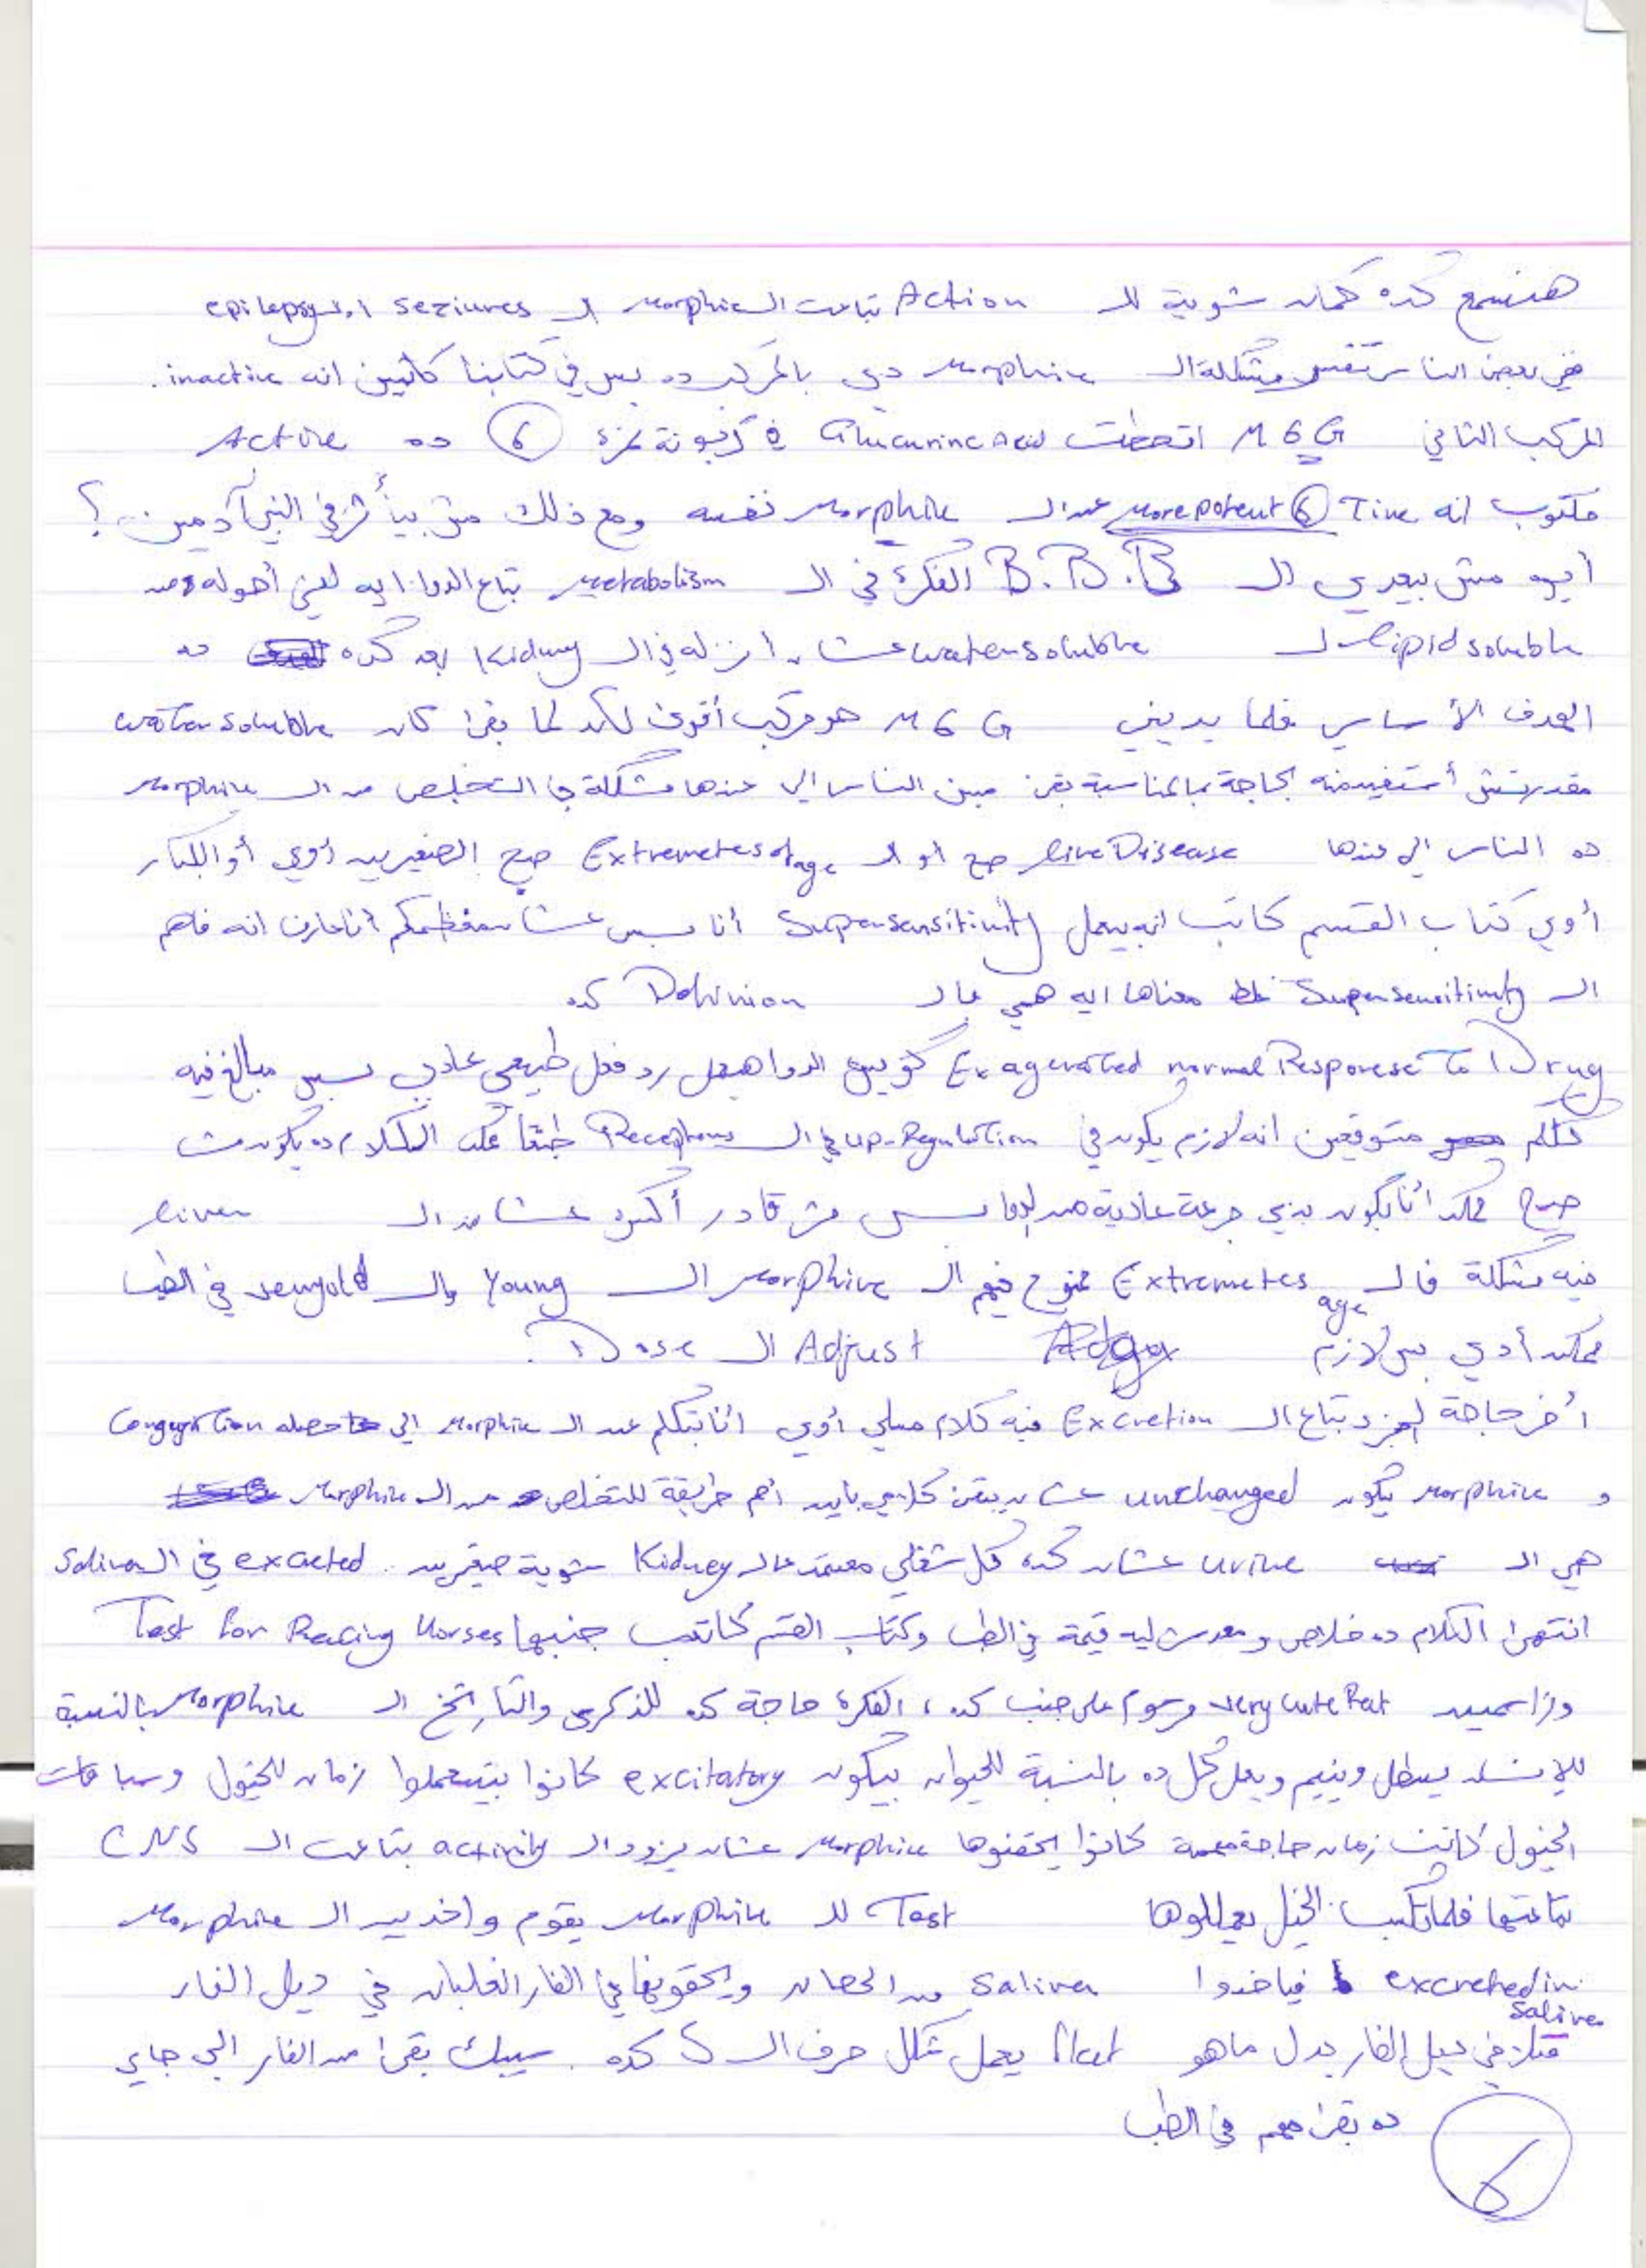 هنسمع كده كمان شوية لل Action بتاعت ال morphine ال seziures او ال epilepsy
في بعض الناس تفسر مشكلة ال morphine دي بالمركب ده بس في كتابنا كاتبين انه inactive.
المركب التاني M 6 G اتحطت Glucurinc Acid في كربونة نمرة 6 ده Active
مكتوب انه Time 6 more potent عن ال morphine نفسه ومع ذلك مش بيأثر في البني آدمين ؟
أيوه مش بيعدي ال B.B.B الفكرة في ال metabolism بتاع الدوا ايه اني أحوله من
lipid soluble ل water soluble عشان أنزله في ال Kidney بعد كده ده
الهدف الأساسي فلما يديني M 6 G هو مركب أقوى لكن لما بقى كان water soluble
مقدرتش أستفيد منه بحاجة بالمناسبة بقى مين الناس الي عندها مشكلة في التخلص من ال morphine
ده الناس الي عندها live Disease صح او ال Extremetes of age صح الصغيرين أوي أو الكبار
أوي كتاب القسم كاتب انه بيعمل Supersensitivity أنا بس عشان معظمكم أنا عارف انه فاهم
ال Supersensitivity غلط معناها ايه هي بال Defnion كده
Exagerated normal Response to Drug كويس الدوا هيعمل رد فعل طبيعي عادي بس مبالغ فيه
كلكم متوقعين انه لازم يكون في up-Regulation في ال Receptors طبعاً الكلام ده يكون مش
صح ممكن أنا بكون بدي جرعة عادية من الدوا بس مش قادر أكسره عشان ال liver
فيه مشكلة فال Extremetes age ممنوع فيهم ال morphine ال Young وال very old في الطب
ممكن أدي بس لازم Adjust ال Dose.
أخر حاجة الجزء بتاع ال Excretion فيه كلام مسلي أوي أنا بتكلم عن ال morphine الي حصله Congugation
و morphine يكون unchanged عشان يبقى كلامي باين أهم طريقة للتخلص من ال morphine
هي ال urine عشان كده كل شغلي معتمد عال Kidney شوية صغيرين excreted في ال Saliva
انتهى الكلام ده خلاص ومعدش ليه قيمة في الطب وكتاب القسم كاتب جنبها Test for Racing Horses
وراسمين very cute Rat مرسوم على جنب كده ، الفكرة حاجة كده للذكرى والتاريخ ال morphine بالنسبة
للإنسان يسطل وينيم ويعمل كل ده بالنسبة للحيوان بيكون excitatory كانوا بيستعملوا زمان للخيول وسباقات
الخيول كانت زمان حاجة مهمة كانوا بيحقنوها morphine عشان يزود ال activity بتاعت ال CNS
بتاعتها فلما تكسب الخيل يعملوها Test لل morphine يقوم واخدين ال morphine
excreted in saliva فياخدوا saliva من الحصان ويحقنوها في الفار الغلبان في ديل الفار
فتلاقي ديل الفار بدل ماهو flat يعمل شكل حرف ال S كده. سيبك بقى من الفار الي جاي
ده بقى مهم في الطب
6